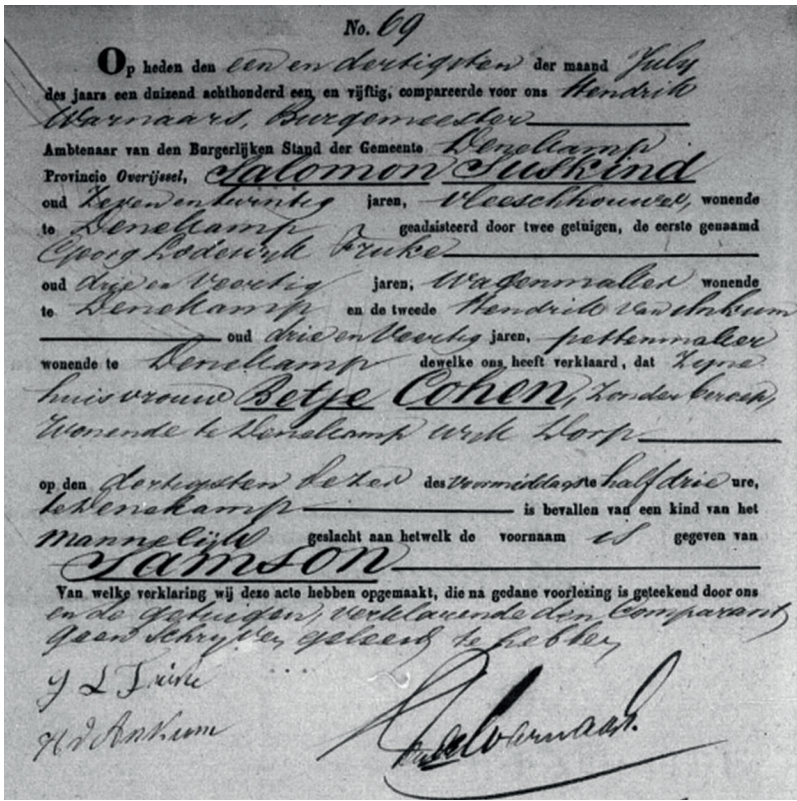 No. 69
Op heden den een en dertigsten der maand July
des jaars een duizend achthonderd een en vijftig, compareerde voor ons Hendrik
Warnaars, Burgemeester
Ambtenaar van den Burgerlijken Stand der Gemeente Denekamp
Provincie Overijssel, Salomon Suskind
oud Zeven en twintig jaren, vleeschhouwer, wonende
te Denekamp geadsisteerd door twee getuigen, de eerste genaamd
Georg Lodewyk
oud drie en Veertig jaren, Wagenmaker wonende
te Denekamp en de tweede Hendrik van Ankum
oud drie en Veertig jaren, pettenmaker
wonende te Denekamp dewelke ons heeft verklaard, dat Zyne
huisvrouw Betje Cohen, Zonder beroep,
Wonende te Denekamp wyk Dorp
op den dertigsten dezer des Voormiddags te half drie ure,
te Denekamp is bevallen van een kind van het
Mannelijk geslacht aan hetwelk de voornaam is gegeven van
Samson
Van welke verklaring wij deze acte hebben opgemaakt, die na gedane voorlezing is geteekend door ons
en de getuigen, verklarende den Comparant
geen Schryven geleerd te hebben
H v Ankum
Warnaars.